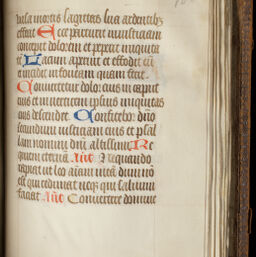 vasa mortis sagittas suas ardentibus
effecit Ecce parturit iniusticiam
concepit dolorem et peperit iniquita
tē Lacum aperuit et effodit eū
et incidit in foueam quam fecit
Conuertetur dolor eius in caput
eius et in uerticem ipsius iniquitas
eius descendet Confitebor dño
secundum iusticiam eius et psal
lam nomini dñi altissimi Re
quiem eternā Añe Nequando
rapiat ut leo aīam meā dum nō
est qui redimat neq; qui saluum
faciat Añe Conuertere domine